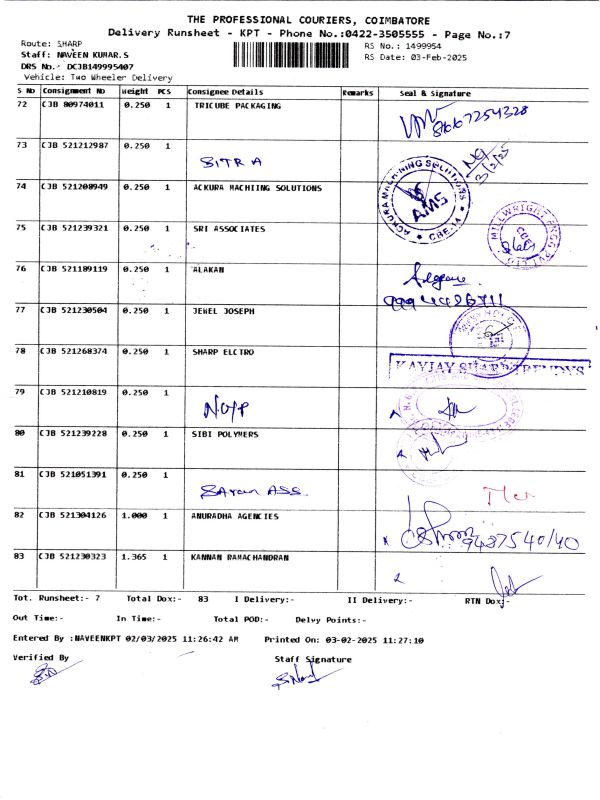 THE PROFESSIONAL COURIERS, COIMBATORE
Delivery Runsheet - KPT - Phone No.:0422-3505555 - Page No.:7
Route: SHARP
RS No.: 1499954
Staff: NAVEEN KUMAR.S
RS Date: 03-Feb-2025
DRS No.: DCJB149995407
Vehicle: Two Wheeler Delivery
S No Consignment No Weight PCS Consignee Details Remarks Seal & Signature
72 CJB 80974011 0.250 1 TRICUBE PACKAGING
8667254328
73 CJB 521212987 0.250 1
SITRA
3/2/25
74 CJB 521208949 0.250 1 ACKURA MACHIING SOLUTIONS
AMS
CBE-14
75 CJB 521239321 0.250 1 SRI ASSOCIATES
76 CJB 521189119 0.250 1 ALAKAN
77 CJB 521230504 0.250 1 JEWEL JOSEPH
78 CJB 521268374 0.250 1 SHARP ELCTRO
KAYJAY SHARP TRENDYS
79 CJB 521210819 0.250 1
NO/P
80 CJB 521239228 0.250 1 SIBI POLYMERS
81 CJB 521051391 0.250 1
Saran ASS.
82 CJB 521304126 1.000 1 ANURADHA AGENCIES
9487540140
83 CJB 521230323 1.365 1 KANNAN RAMACHANDRAN
Tot. Runsheet:- 7 Total Dox:- 83 I Delivery:- II Delivery:- RTN Dox:-
Out Time:- In Time:- Total POD:- Delvy Points:-
Entered By :NAVEENKPT 02/03/2025 11:26:42 AM Printed On: 03-02-2025 11:27:10
Verified By Staff Signature